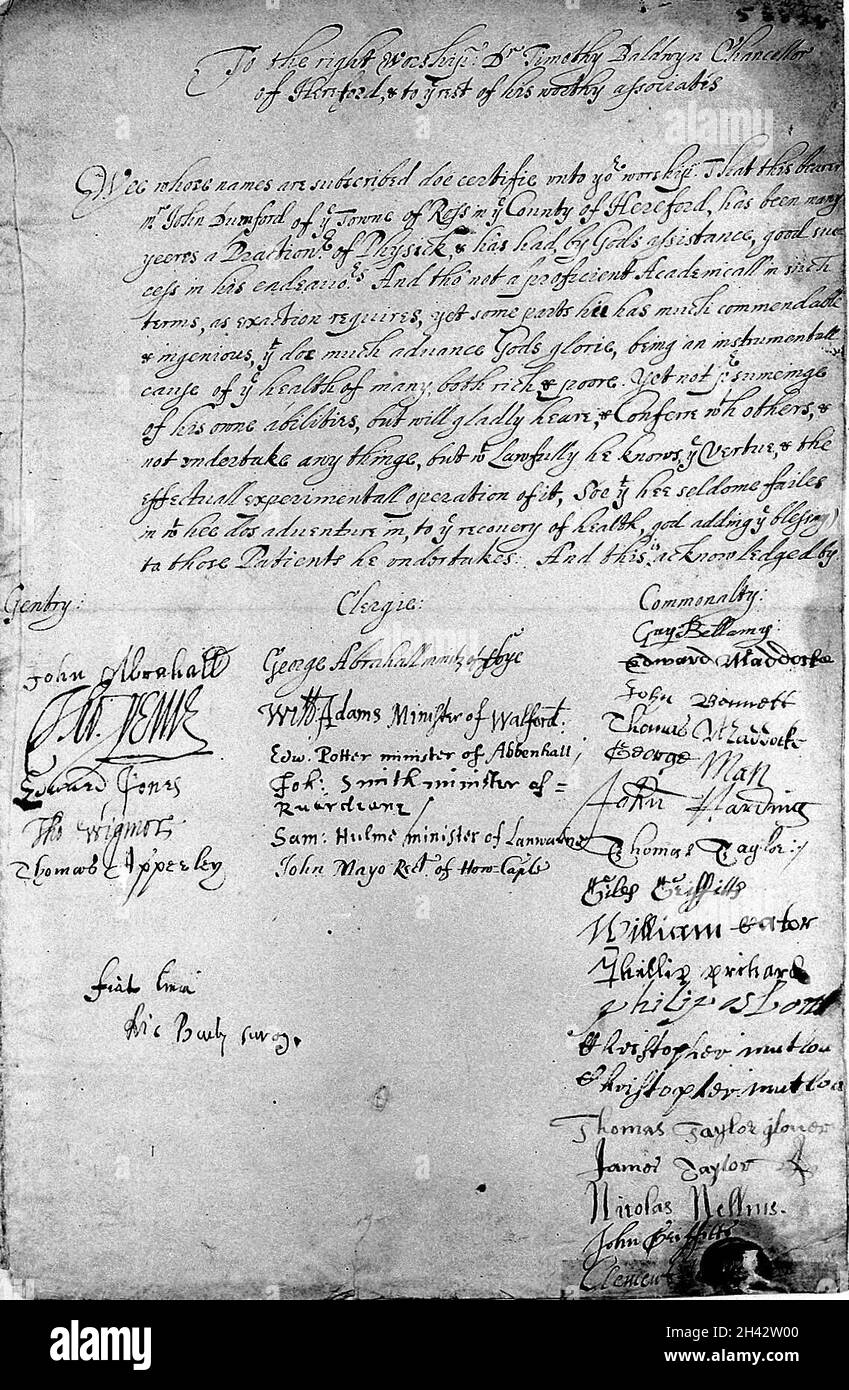 To the right Worshipll. Dr. Timothy Baldwyn Chancellor
of Hereford, & to ye rest of his worthy associates
Wee whose names are subscribed doe certifie vnto yor worshipll. That this bearer
mr. John Dumford of ye Towne of Ross in ye County of Hereford, has been many
yeeres a Practionr. of Physick, & has had, by Gods assistance, good suc-
cess in his endeavors. And tho' not a proficient Academicall in such
terms, as exaction requires, yet some parts hee has much commendable
& ingenious, yt doe much advance Gods glorie, being an instrumentall
cause of ye health of many, both rich & poore. Yet not presumeinge
of his owne abilities, but will gladly heare, & Conferre wth others, &
not vndertake any thinge, but wt Lawfully he knows, ye Vertue, & the
effectuall experimentall operation of it, Soe yt hee seldome failes
in wt hee dos adventure in, to ye recovery of health, (god adding ye blessing)
to those Patients he vndertakes. And this is acknowledged by
Gentry: Clergie: Commonalty:
Guy Bellamy:
John Abrahall George Abrahall of Edward Maddocke
John Bennett
Willm Adams Minister of Walford: Thomas Maddocke
Edw. Potter minister of Abbenhall; George Man
Edward Jones Joh: Smith minister of =
Ruardeane/ John Harding
Tho Wigmore Sam: Hulme minister of Lanwarne Thomas Taylor
Thomas Apperley John Mayo Rect. of How-Caple
Giles Griffitts
William eator
Phillip prichard
fiat
Philip
Christopher mutlow
Christopher mutlow
Thomas Taylor glover
James Taylor
Nicolas Nellms.
John Griffitts
Clement
alamy
Image ID: 2H42W00
www.alamy.com